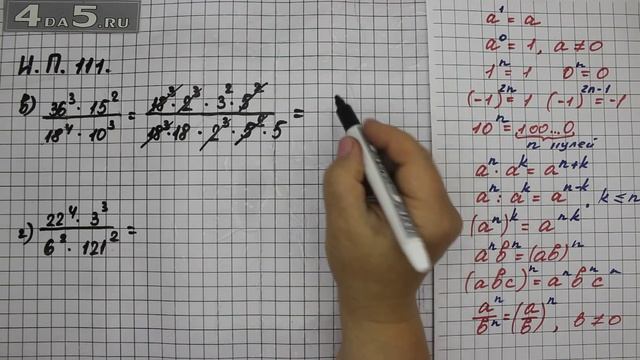 4DA5.RU
Н. П. 111.
в) 36³ · 15² / 18⁴ · 10³ = 18³ · 2³ · 3² · 5² / 18³ · 18 · 2³ · 5² · 5 =
г) 22⁴ · 3³ / 6² · 121² =
a¹ = a
a⁰ = 1, a ≠ 0
1ⁿ = 1 0ⁿ = 0
(-1)²ⁿ = 1 (-1)²ⁿ⁻¹ = -1
10ⁿ = 100...0
n нулей
aⁿ · aᵏ = aⁿ⁺ᵏ
aⁿ : aᵏ = aⁿ⁻ᵏ, k ≤ n
(aⁿ)ᵏ = aⁿᵏ
aⁿbⁿ = (ab)ⁿ
(abc)ⁿ = aⁿbⁿcⁿ
aⁿ/bⁿ = (a/b)ⁿ, b ≠ 0